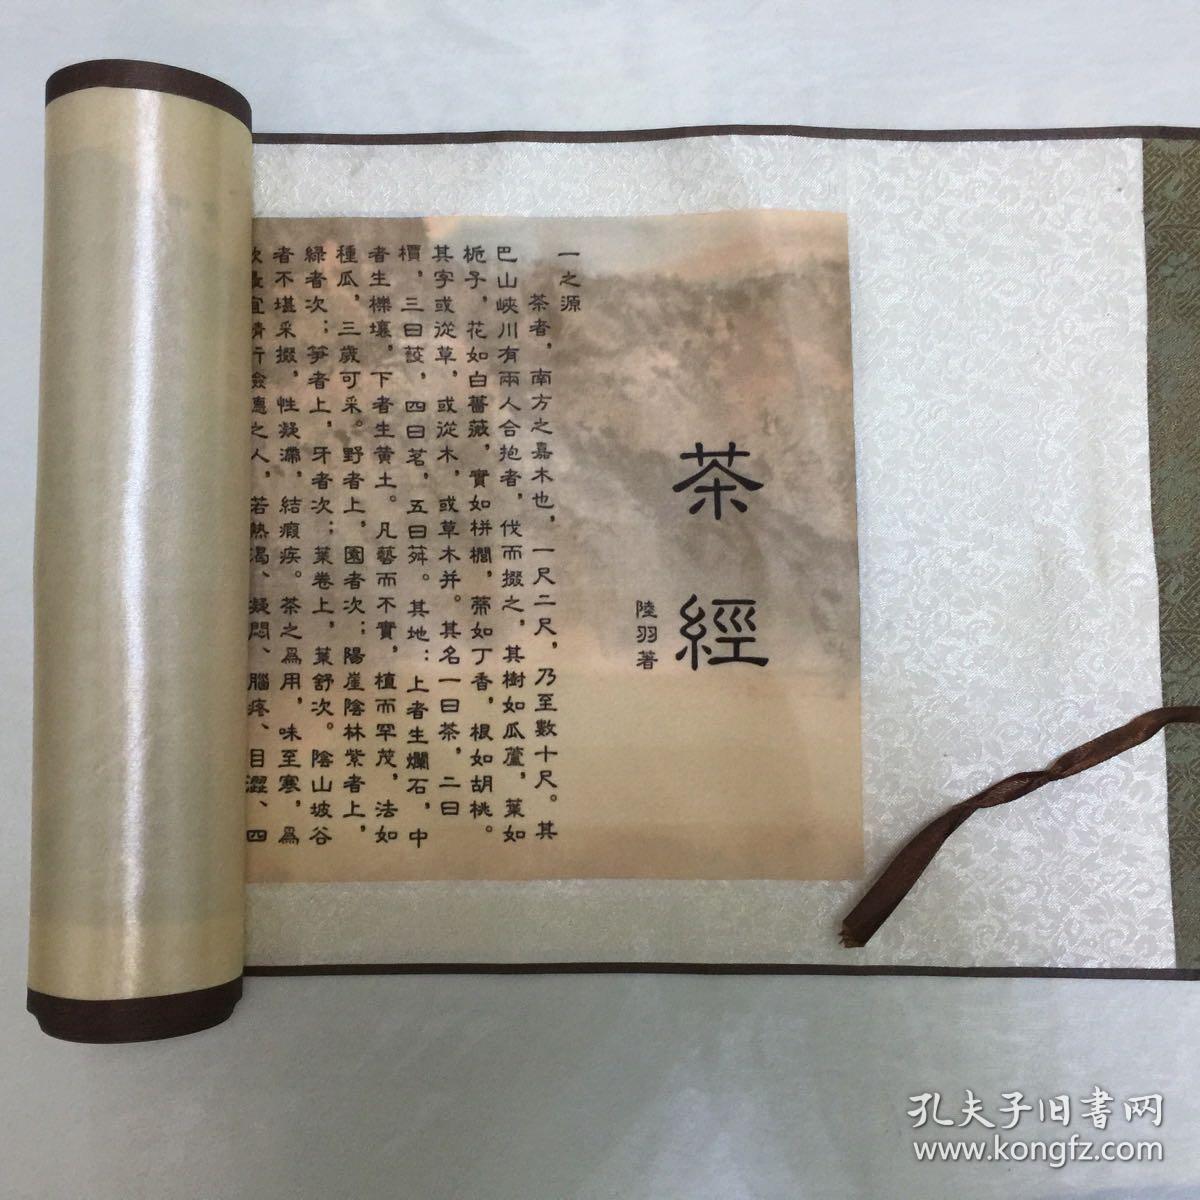 茶經
陸羽著
一之源
茶者，南方之嘉木也，一尺二尺，乃至數十尺。其
巴山峽川有兩人合抱者，伐而掇之，其樹如瓜蘆，葉如
栀子，花如白薔薇，實如栟櫚，蒂如丁香，根如胡桃。
其字或從草，或從木，或草木并。其名一曰茶，二曰
檟，三曰蔎，四曰茗，五曰荈。其地：上者生爛石，中
者生櫟壤，下者生黄土。凡藝而不實，植而罕茂，法如
種瓜，三歲可采。野者上，園者次；陽崖陰林紫者上，
緑者次；笋者上，牙者次；葉卷上，葉舒次。陰山坡谷
者不堪采掇，性凝滯，結瘕疾。茶之爲用，味至寒，爲
宜精行儉德之人，若熱渴、凝悶、腦疼、目澀、四
孔夫子旧書网
www.kongfz.com